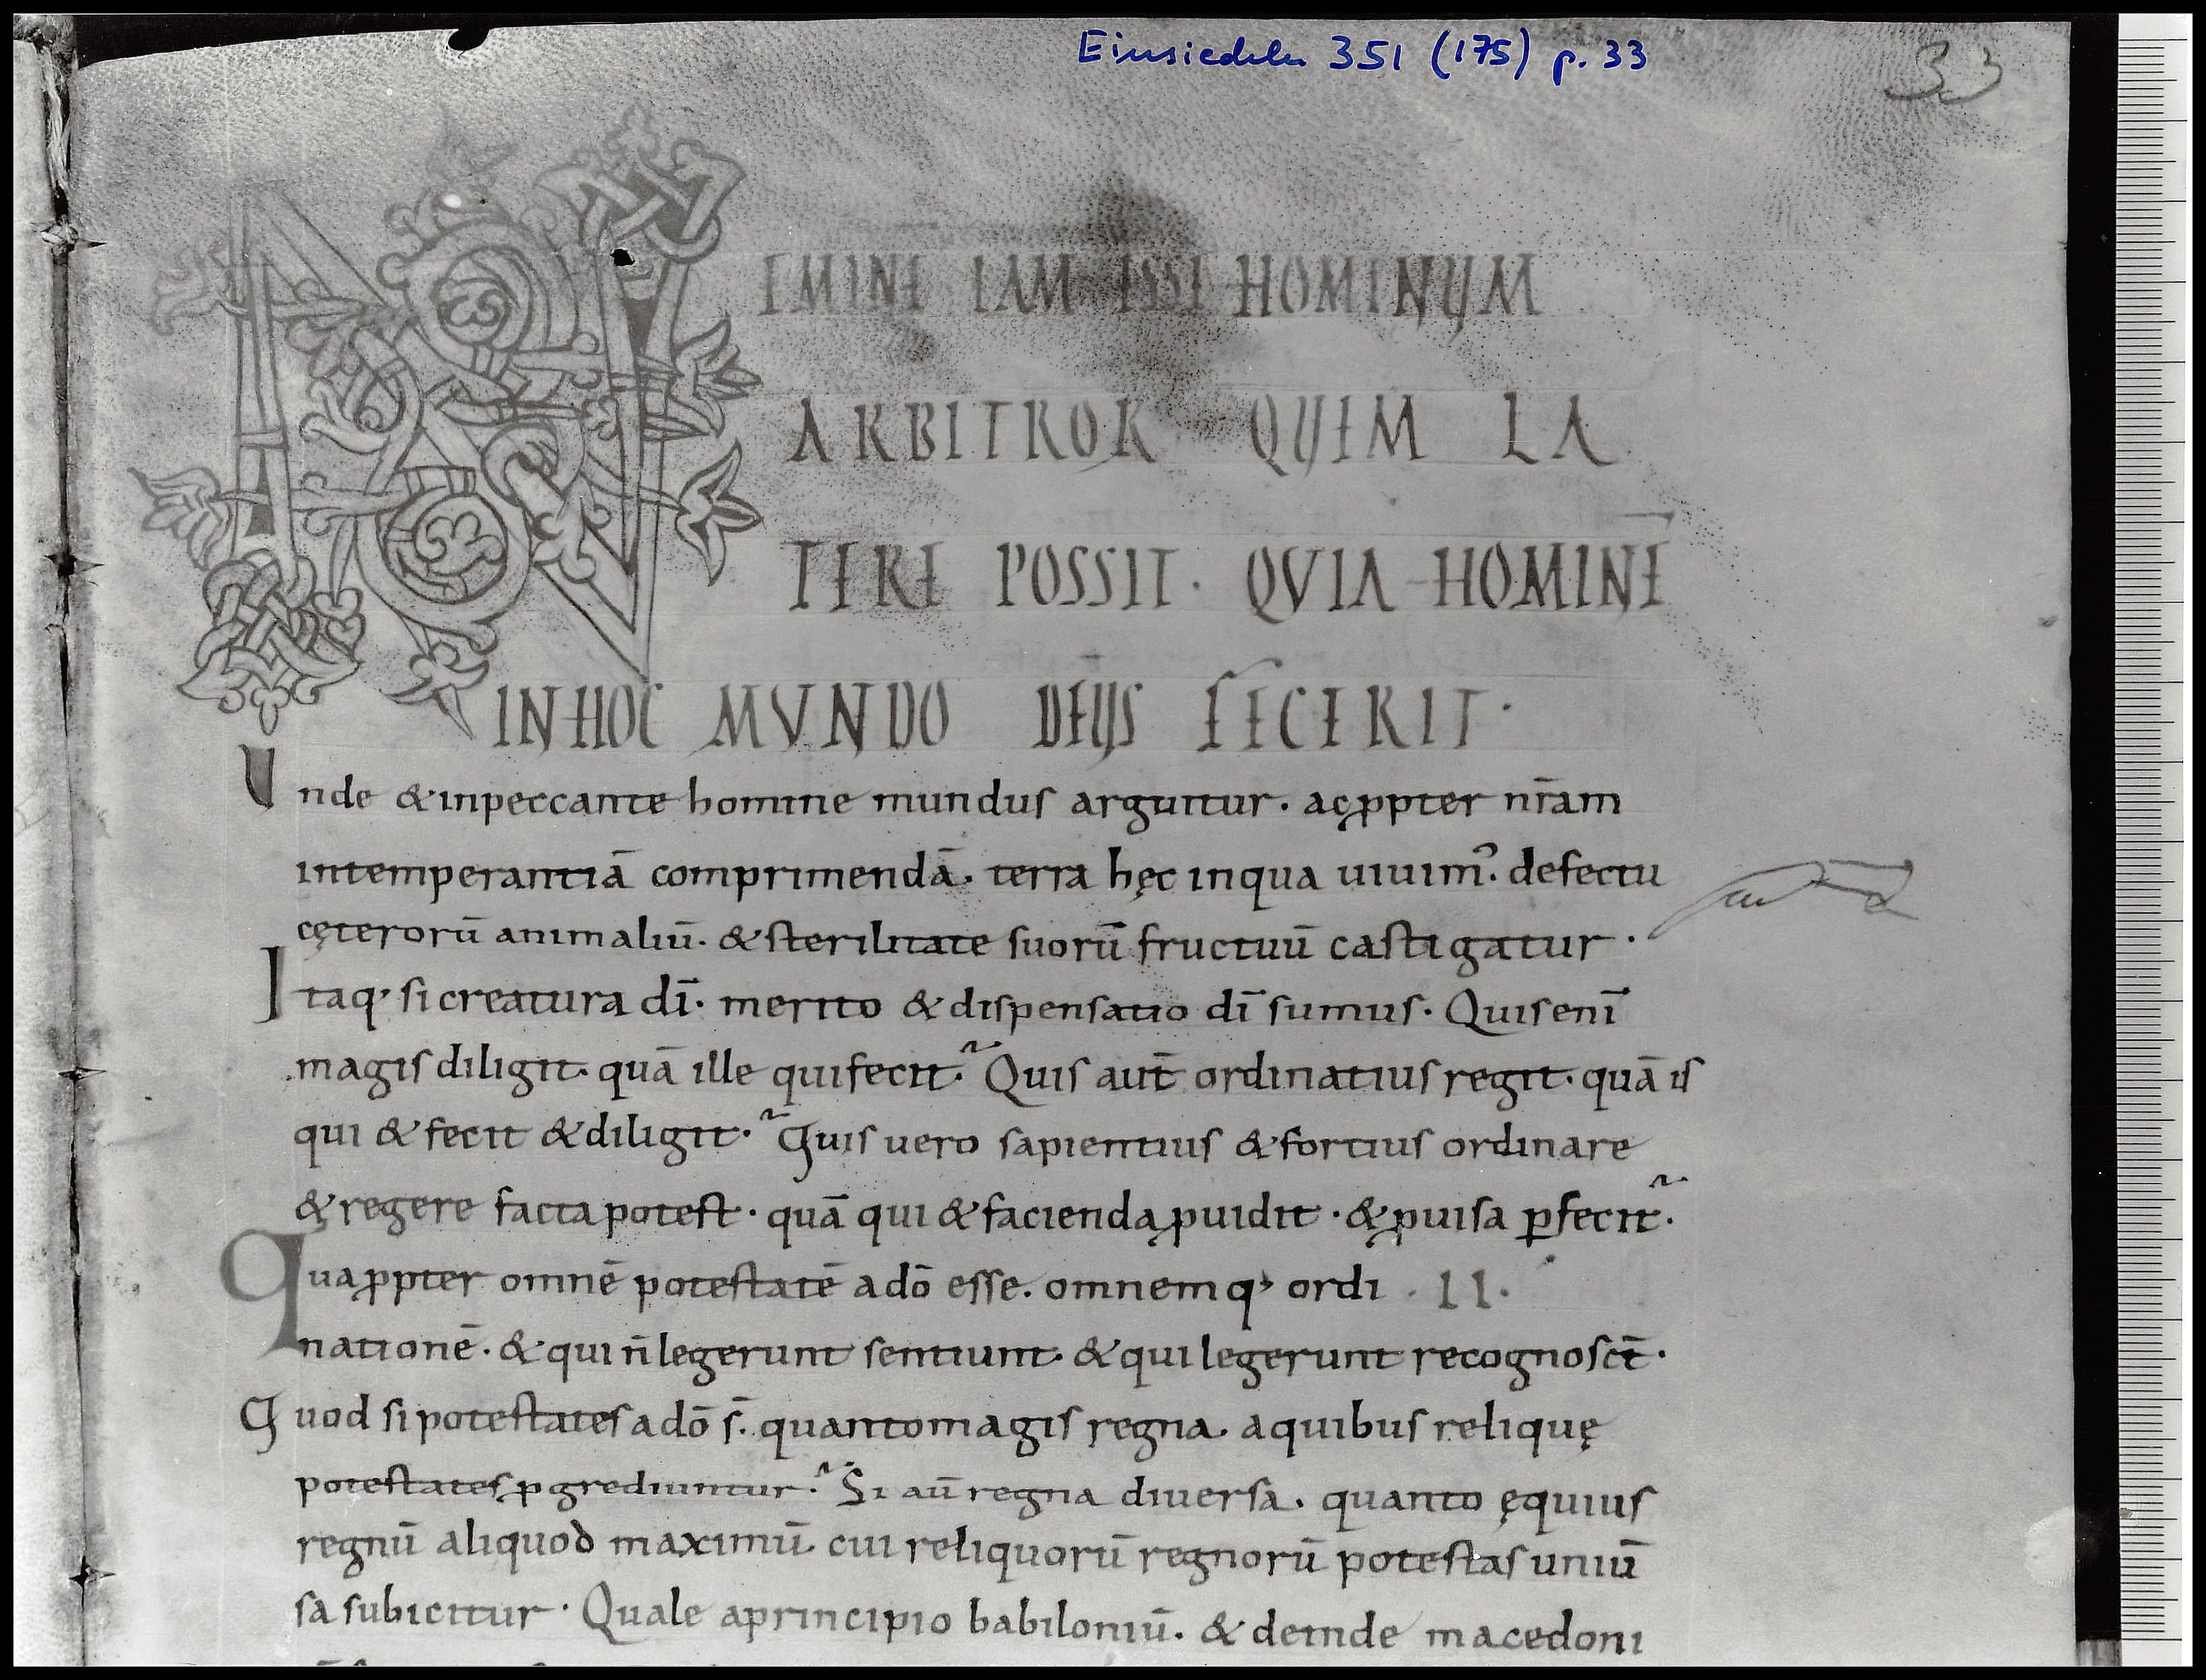 Einsiedeln 351 (175) p. 33
33
NEMINE IAM ESSE HOMINUM
ARBITROR QUEM LA
TERE POSSIT · QVIA HOMINĒ
IN HOC MVNDO DEUS FECERIT ·
Unde & inpeccante homine mundus arguitur · ac ꝓpter nr̄am
intemperantiā comprimendā · terra hęc inqua uiuim᾿ · defectu
cęterorū animaliū · & sterilitate suorū fructuū castigatur ·
Itaq; si creatura dī · merito & dispensatio dī sumus · Quis enī
magis diligit · quā ille qui fecit? Quis aut̄ ordinatius regit · quā is
qui & fecit & diligit? Quis uero sapientius & fortius ordinare
& regere facta potest · quā qui & facienda ꝓuidit · & ꝓuisa ꝑfecit?
Quaꝓpter omnē potestatē a dō esse · omnemq; ordi · II ·
nationē · & qui n̄ legerunt sentiunt · & qui legerunt recognosct̄ ·
Quod si potestates a dō s̄ · quanto magis regna · a quibus reliquę
potestates ꝓgrediuntur? Si aū regna diuersa · quanto ęquius
regnū aliquod maximū · cui reliquorū regnorū potestas uniū
sa subicitur · Quale aprincipio babiloniū · & deinde macedoni